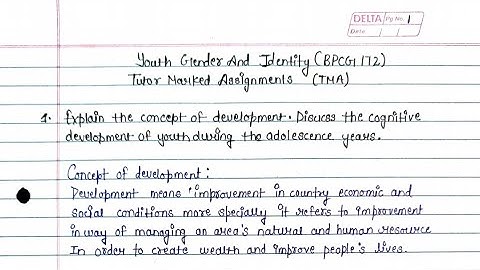 DELTA Pg No. 1
Date / /
Youth Gender And Identity (BPCG 172)
Tutor Marked Assignments (TMA)
1. Explain the concept of development. Discuss the cognitive
development of youth during the adolescence years.
Concept of development:
Development means 'improvement in country economic and
social conditions more specially it refers to improvement
in way of managing an area's natural and human resource
In order to create wealth and improve people's lives.